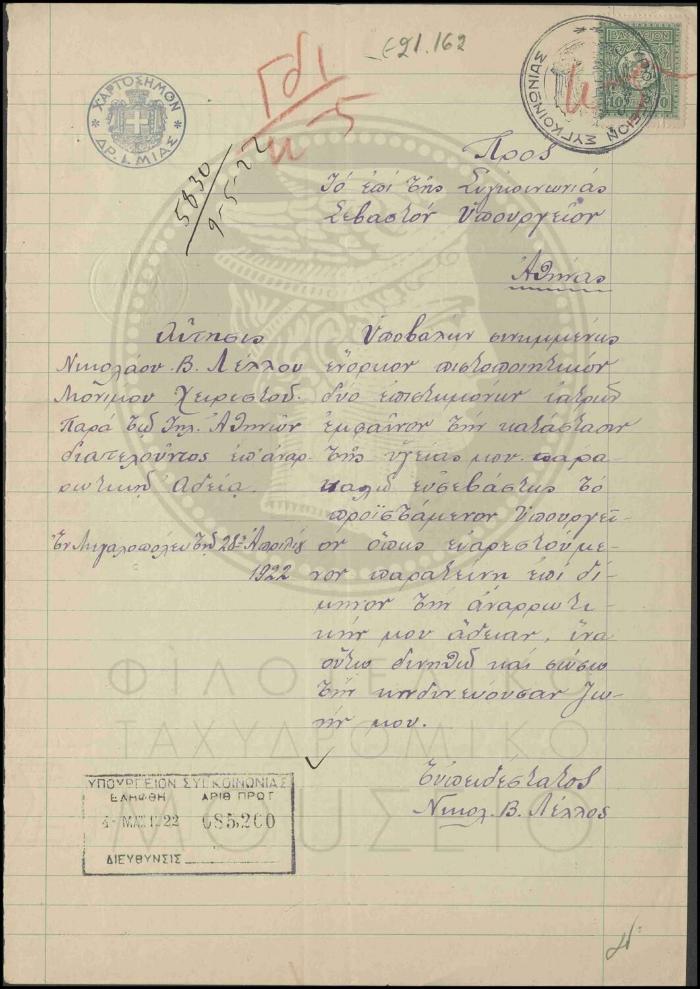 ε21.162
Γδ1
11-5
5830
9-5-22
ΧΑΡΤΟΣΗΜΟΝ
ΔΡ. 1. ΜΙΑΣ
ΒΑΣΙΛΕΙΟΝ
10
ΣΥΓΚΟΙΝΩΝΙΑΣ
Πρὸς
Τό ἐπί τῆς Συγκοινωνίας
Σεβαστόν Ὑπουργεῖον
Ἀθήνας
Αἴτησις
Νικολάου Β. Λέλλου
Μονίμου Χειριστοῦ
Παρά τῷ Τηλ. Ἀθηνῶν
διατελοῦντος ἐπ' ἀναρ-
ρωτικῇ Ἀδείᾳ.
Ἐν Μεγαλοπόλει τῇ 28ῃ Ἀπριλίου
1922
Ὑποβάλων συνημμένως
ἐνόρκον πιστοποιητικόν
δύο ἐπιστημόνων ἰατρῶν
ἐμφαῖνον τήν κατάστασιν
τῆς ὑγείας μου παρα-
καλῶ εὐσεβάστως τό
προϊστάμενον Ὑπουργεῖ-
ον ὅπως εὐαρεστούμε-
νον παρατείνη ἐπί δί-
μηνον τήν ἀναρρωτι-
κήν μου ἄδειαν, ἵνα
οὕτω δυνηθῶ καί σώσω
τήν κινδυνεύουσαν ζω-
ήν μου.
Εὐπειθέστατος
Νικολ. Β. Λέλλος
ΥΠΟΥΡΓΕΙΟΝ ΣΥΓΚΟΙΝΩΝΙΑΣ
ΕΛΗΦΘΗ ΑΡΙΘ ΠΡΩΤ
4- ΜΑΪ 1922 085,260
ΔΙΕΥΘΥΝΣΙΣ
ΦΙΛΟΤΕΛΙΚΟ
ΤΑΧΥΔΡΟΜΙΚΟ
ΜΟΥΣΕΙΟ